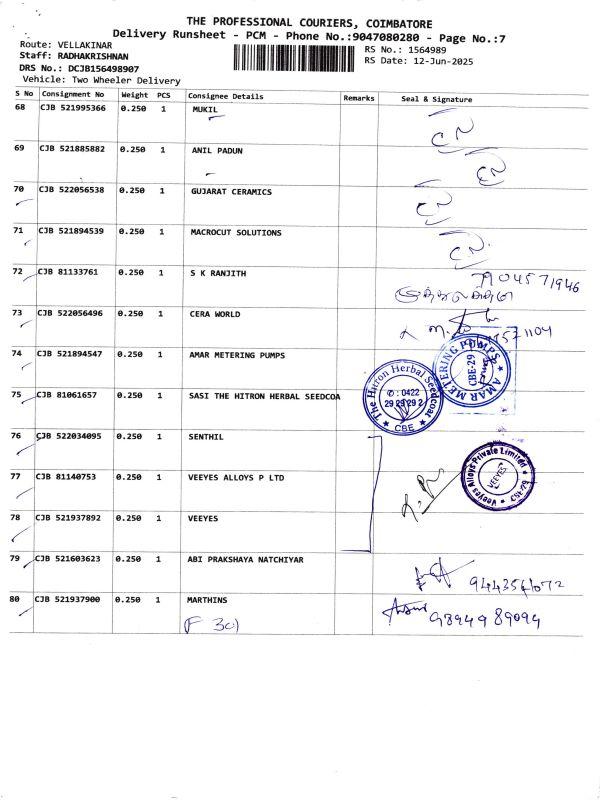 THE PROFESSIONAL COURIERS, COIMBATORE
Delivery Runsheet - PCM - Phone No.:9047080280 - Page No.:7
Route: VELLAKINAR
RS No.: 1564989
Staff: RADHAKRISHNAN
RS Date: 12-Jun-2025
DRS No.: DCJB156498907
Vehicle: Two Wheeler Delivery
S No Consignment No Weight PCS Consignee Details Remarks Seal & Signature
68 CJB 521995366 0.250 1 MUKIL
69 CJB 521885882 0.250 1 ANIL PADUN
70 CJB 522056538 0.250 1 GUJARAT CERAMICS
71 CJB 521894539 0.250 1 MACROCUT SOLUTIONS
72 CJB 81133761 0.250 1 S K RANJITH 7904571946
73 CJB 522056496 0.250 1 CERA WORLD
74 CJB 521894547 0.250 1 AMAR METERING PUMPS
AMAR METERING PUMPS
CBE-29
75 CJB 81061657 0.250 1 SASI THE HITRON HERBAL SEEDCOA
The Hitron Herbal Seedcoat
✆ : 0422
29 29 29 2
CBE
76 CJB 522034095 0.250 1 SENTHIL
77 CJB 81140753 0.250 1 VEEYES ALLOYS P LTD
Veeyes Alloys Private Limited
VEEYES
CBE-29
78 CJB 521937892 0.250 1 VEEYES
79 CJB 521603623 0.250 1 ABI PRAKSHAYA NATCHIYAR
80 CJB 521937900 0.250 1 MARTHINS 9894989094